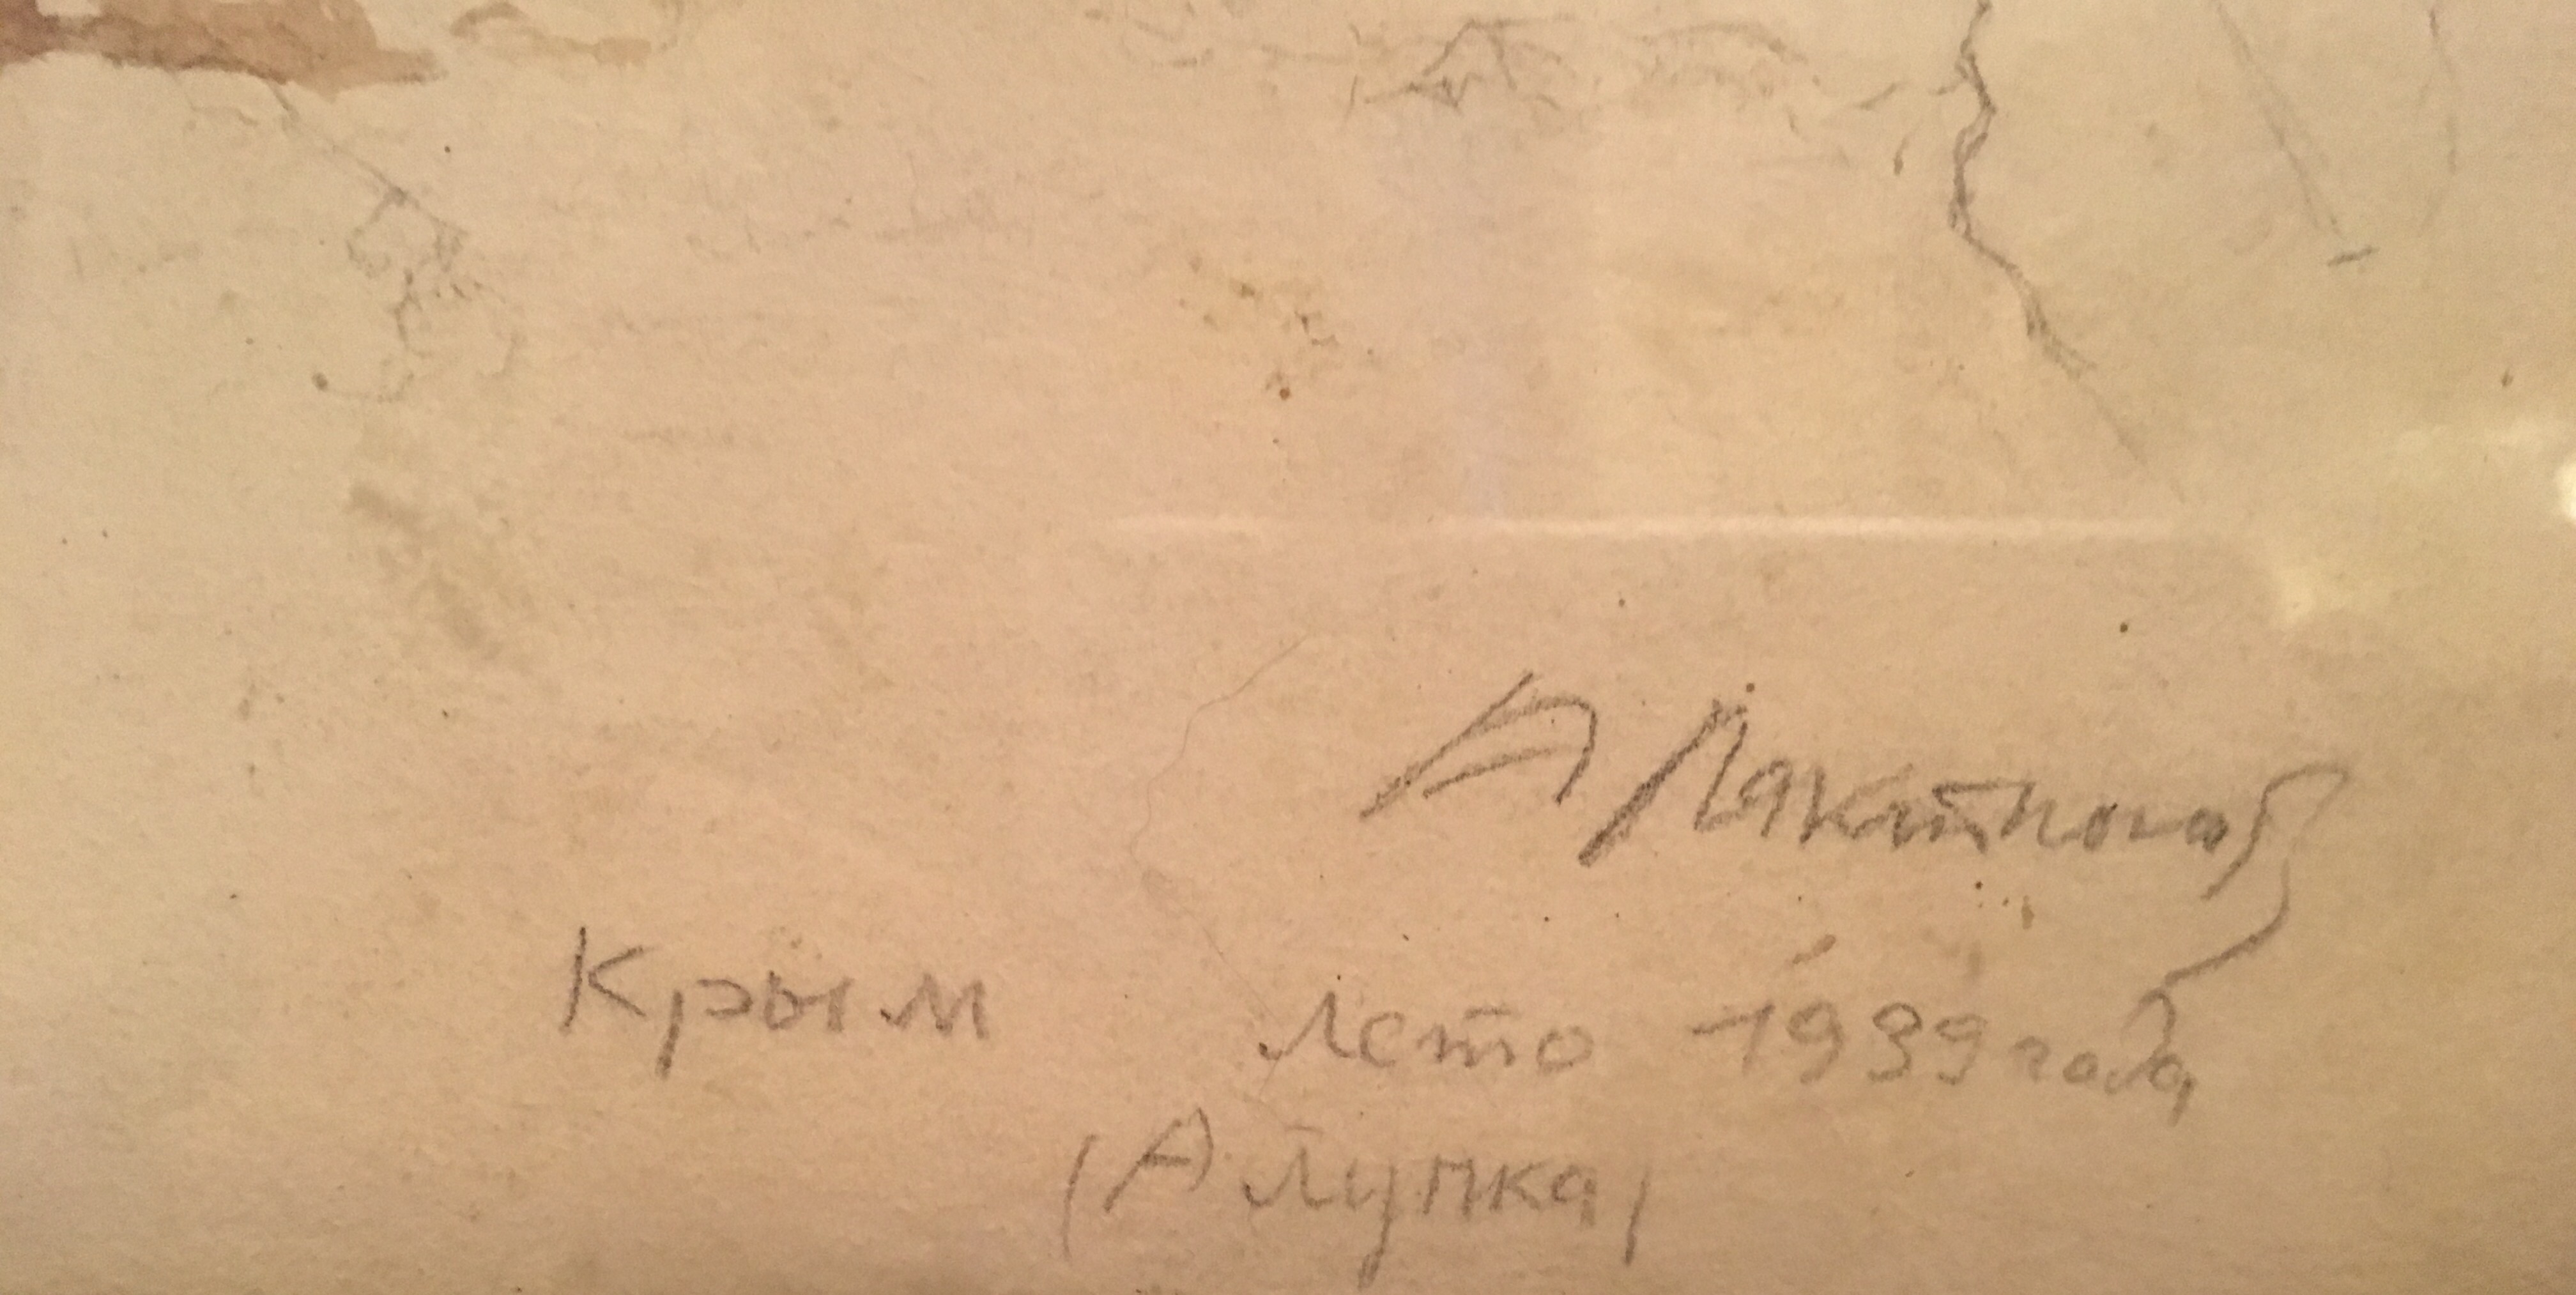 А
Крым лето 1939 года
(Алупка)